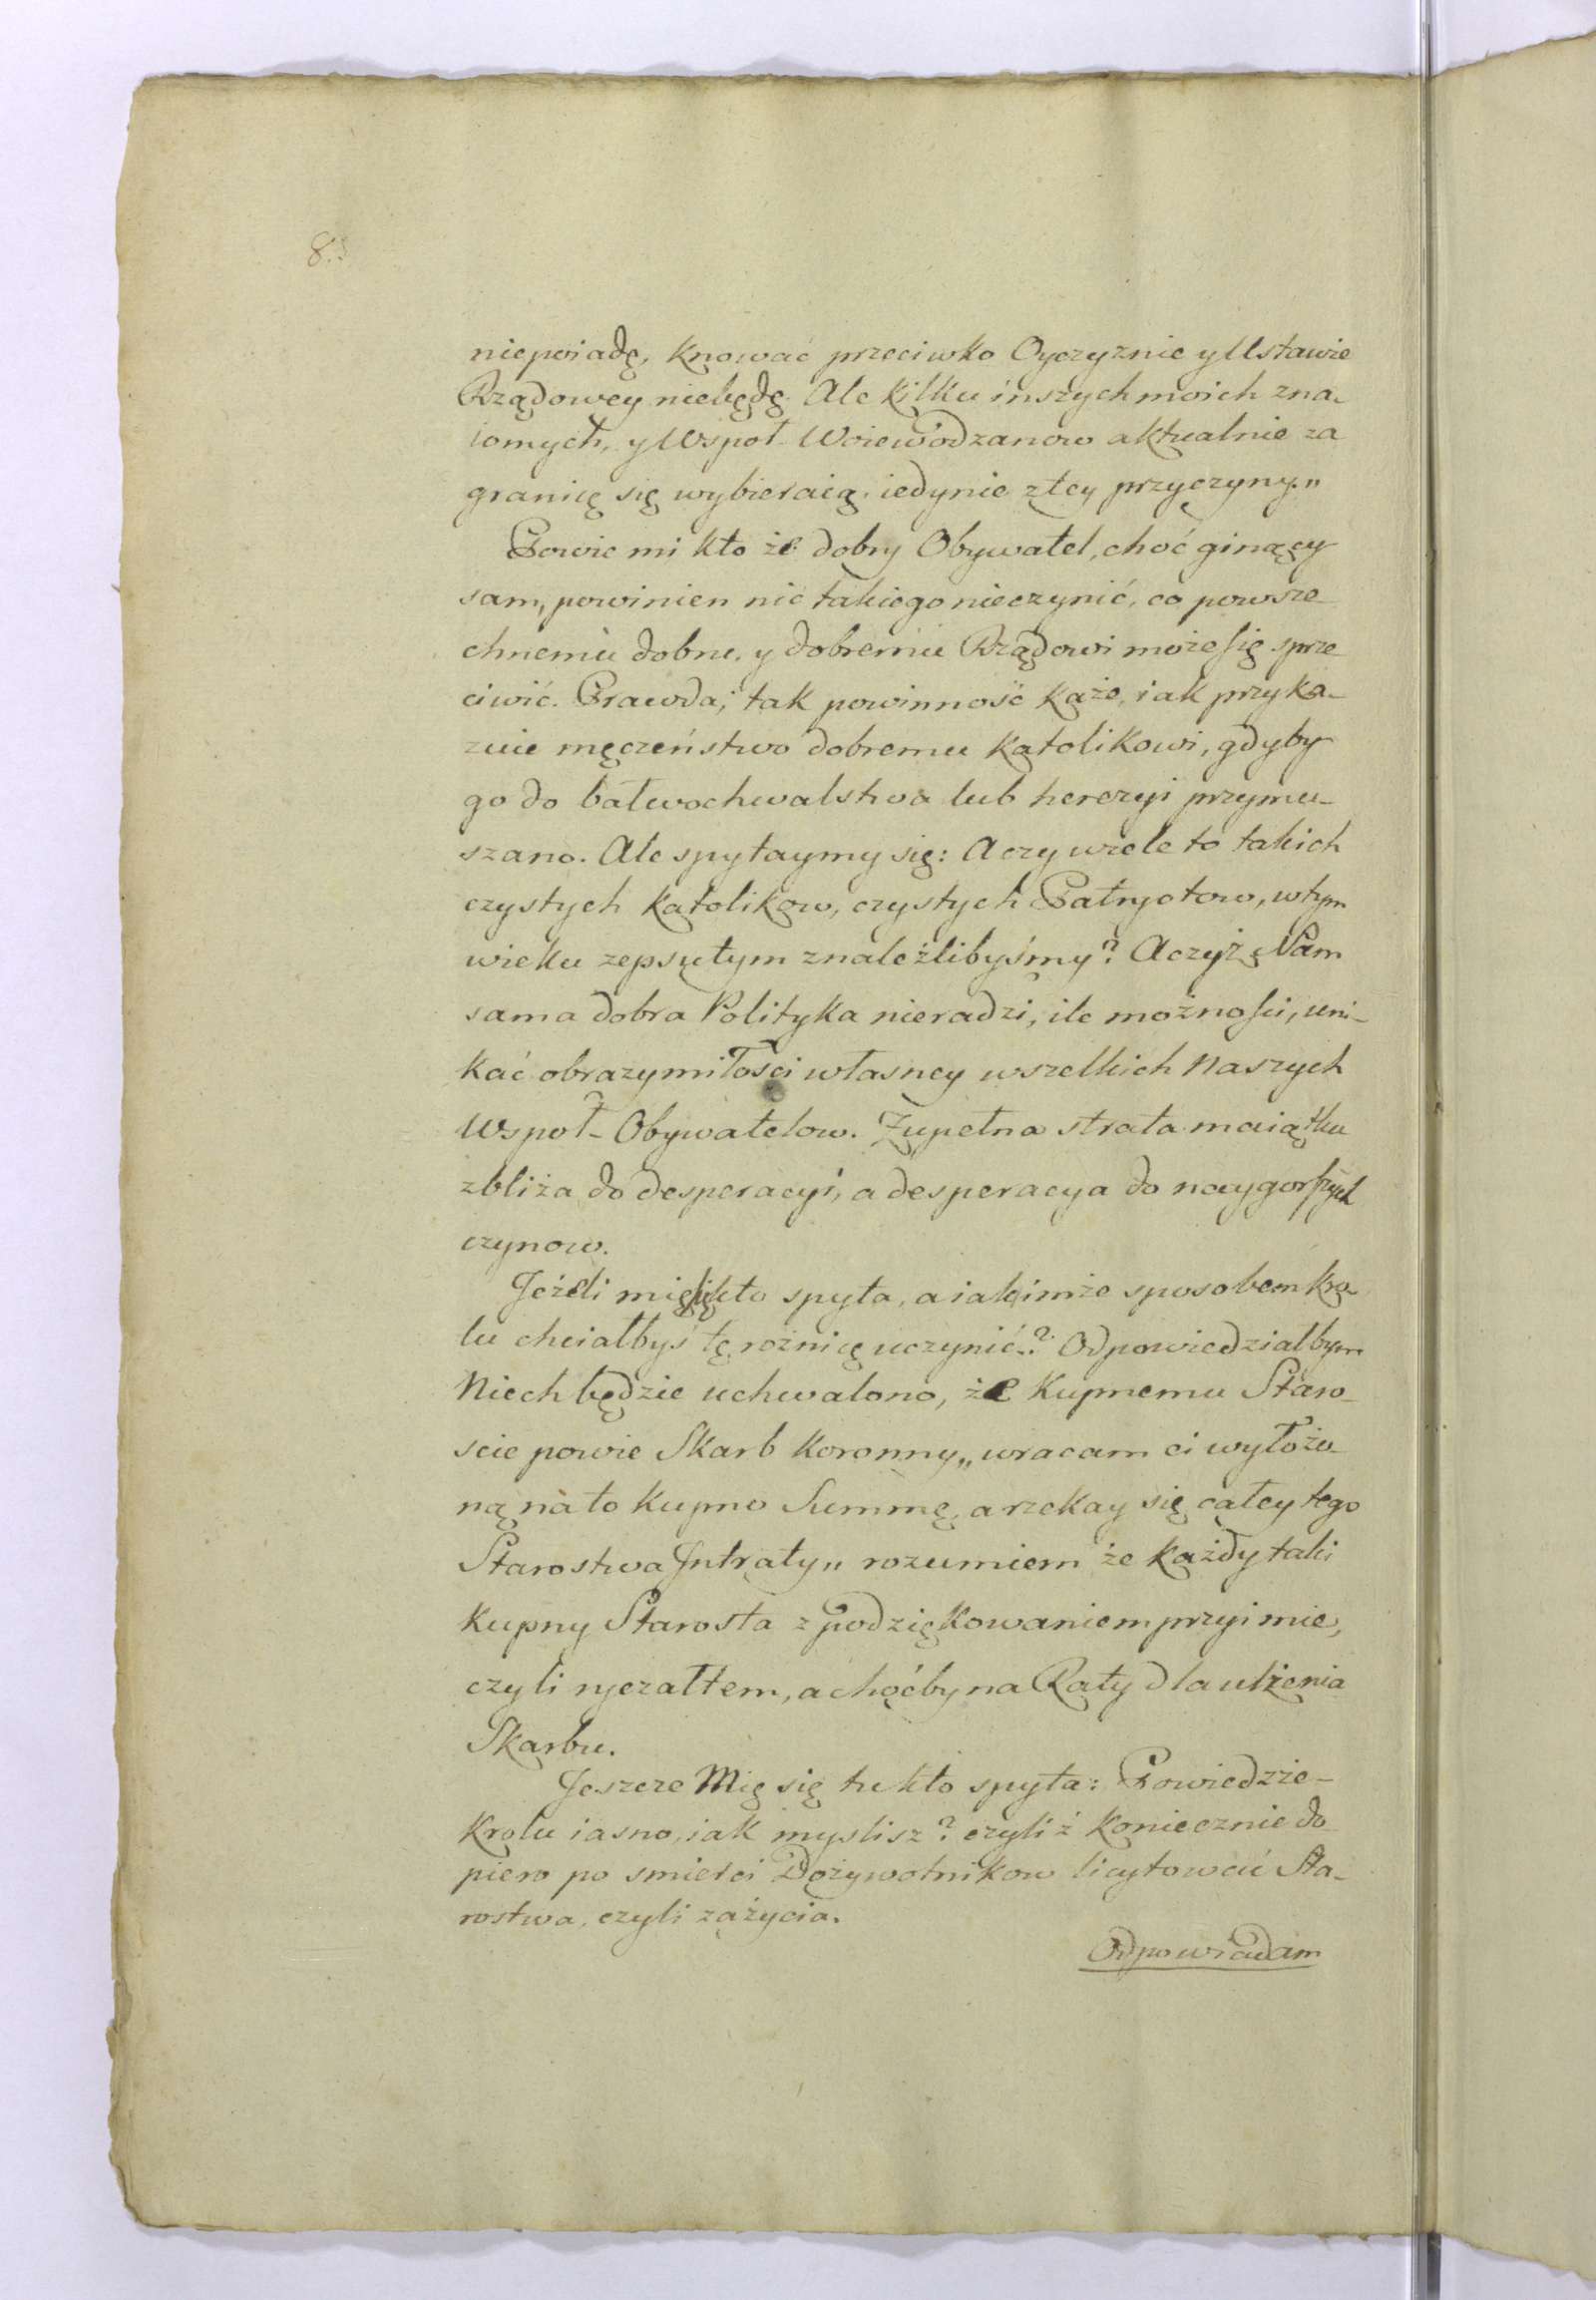 niepoiadę, knować przeciwko Oyczyznie y Ustawie
Rządowey niebędę. Ale kilku inszych moich zna-
iomych, y Wspoł-Woiewodzanow aktualnie za
granicę się wybieraią, iedynie ztey przyczyny."
Powie mi kto że dobry Obywatel, choć ginący
sam, powinien nic takiego nieczynić, co powsze-
chnemu dobru, y dobremu Rządowi może się sprze-
ciwić. Prawda; tak powinność każe, iak przyka-
zuie męczeństwo dobremu katolikowi, gdyby
go do bałwochwalstwa lub herezyi przymu-
szano. Ale spytaymy się: A czy wiele to takich
czystych katolikow, czystych Patryotow, wtym
wieku zepsutym znaleźlibyśmy? A czyż Nam
sama dobra Polityka nieradzi, ile możności, uni-
kać obrazy miłości własney wszelkich Naszych
Wspoł-Obywatelow. Zupełna strata maiątku
zbliża do desperacyi, a desperacya do naygorszych
czynow.
Jeżeli mię kto spyta, a iakimże sposobem Kro-
lu chciałbyś tę rożnicę uczynić..? Odpowiedziałbym
Niech będzie uchwalono, że Kupnemu Staro-
scie powie Skarb Koronny „wracam ci wyłożo-
ną na to kupno Summę, a rzekay się całey tego
Starostwa Intraty" rozumiem że każdy taki
kupny Starosta z podziękowaniem przyimie,
czyli ryczałtem, a choćby na Raty dla ulżenia
Skarbu.
Jeszcze Mię się tu kto spyta: Powiedzże-
Krolu iasno, iak myslisz? czyliż koniecznie do
piero po smierci Dożywotnikow licytować Sta-
rostwa, czyli zażycia.
Odpowiadam